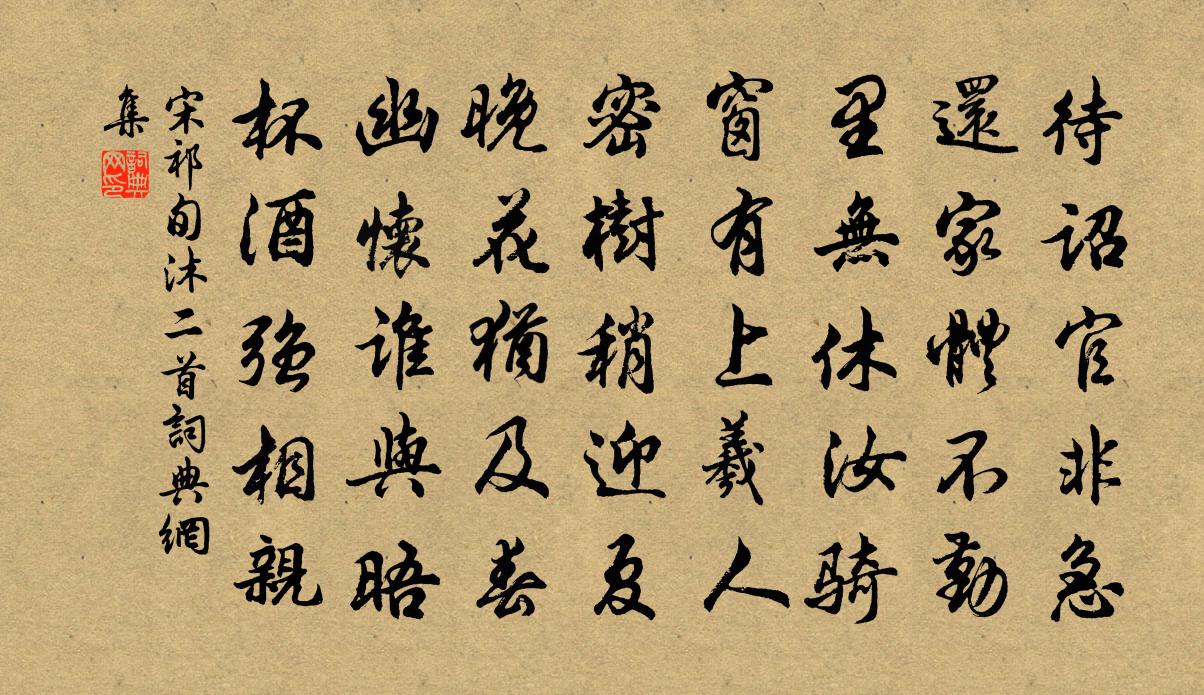 待詔官非急
還家體不勤
里無休汝騎
窗有上羲人
密樹稍迎夏
晚花猶及春
幽懷誰與晤
杯酒強相親
宋祁旬沐二首詞典網
集
詞典网印